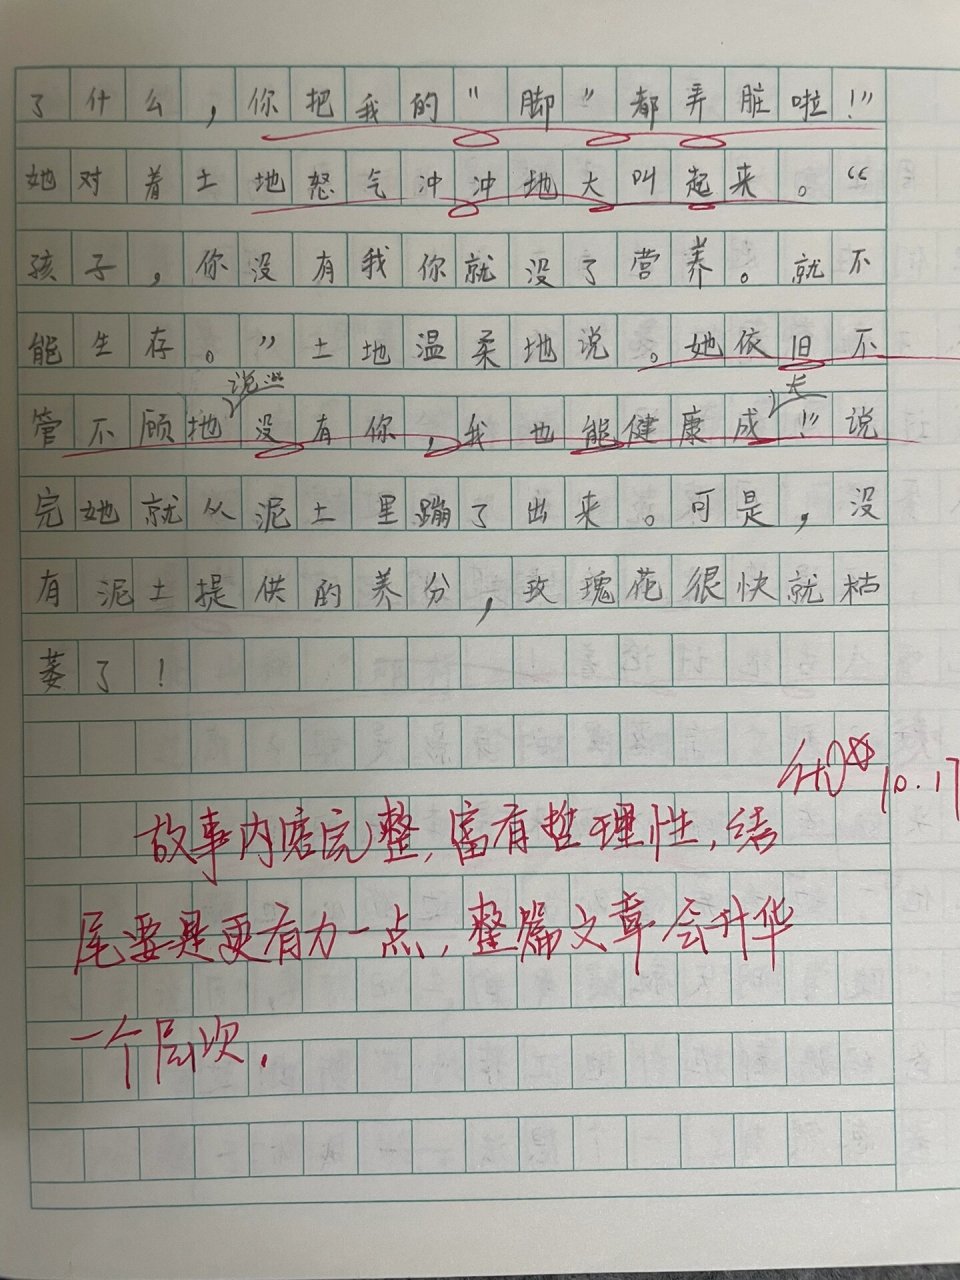 了什么，你把我的“脚”都弄脏啦！”
她对着土地怒气冲冲地大叫起来。“
孩子，你没有我你就没了营养。就不
能生存。”土地温柔地说。她依旧不
说
长
管不顾地没有你，我也能健康成！”说
完她就从泥土里蹦了出来。可是，没
有泥土提供的养份，玫瑰花很快就枯
萎了！
优☆ 10.17
故事内容完整，富有哲理性，结
尾要是更有力一点，整篇文章会升华
一个层次.